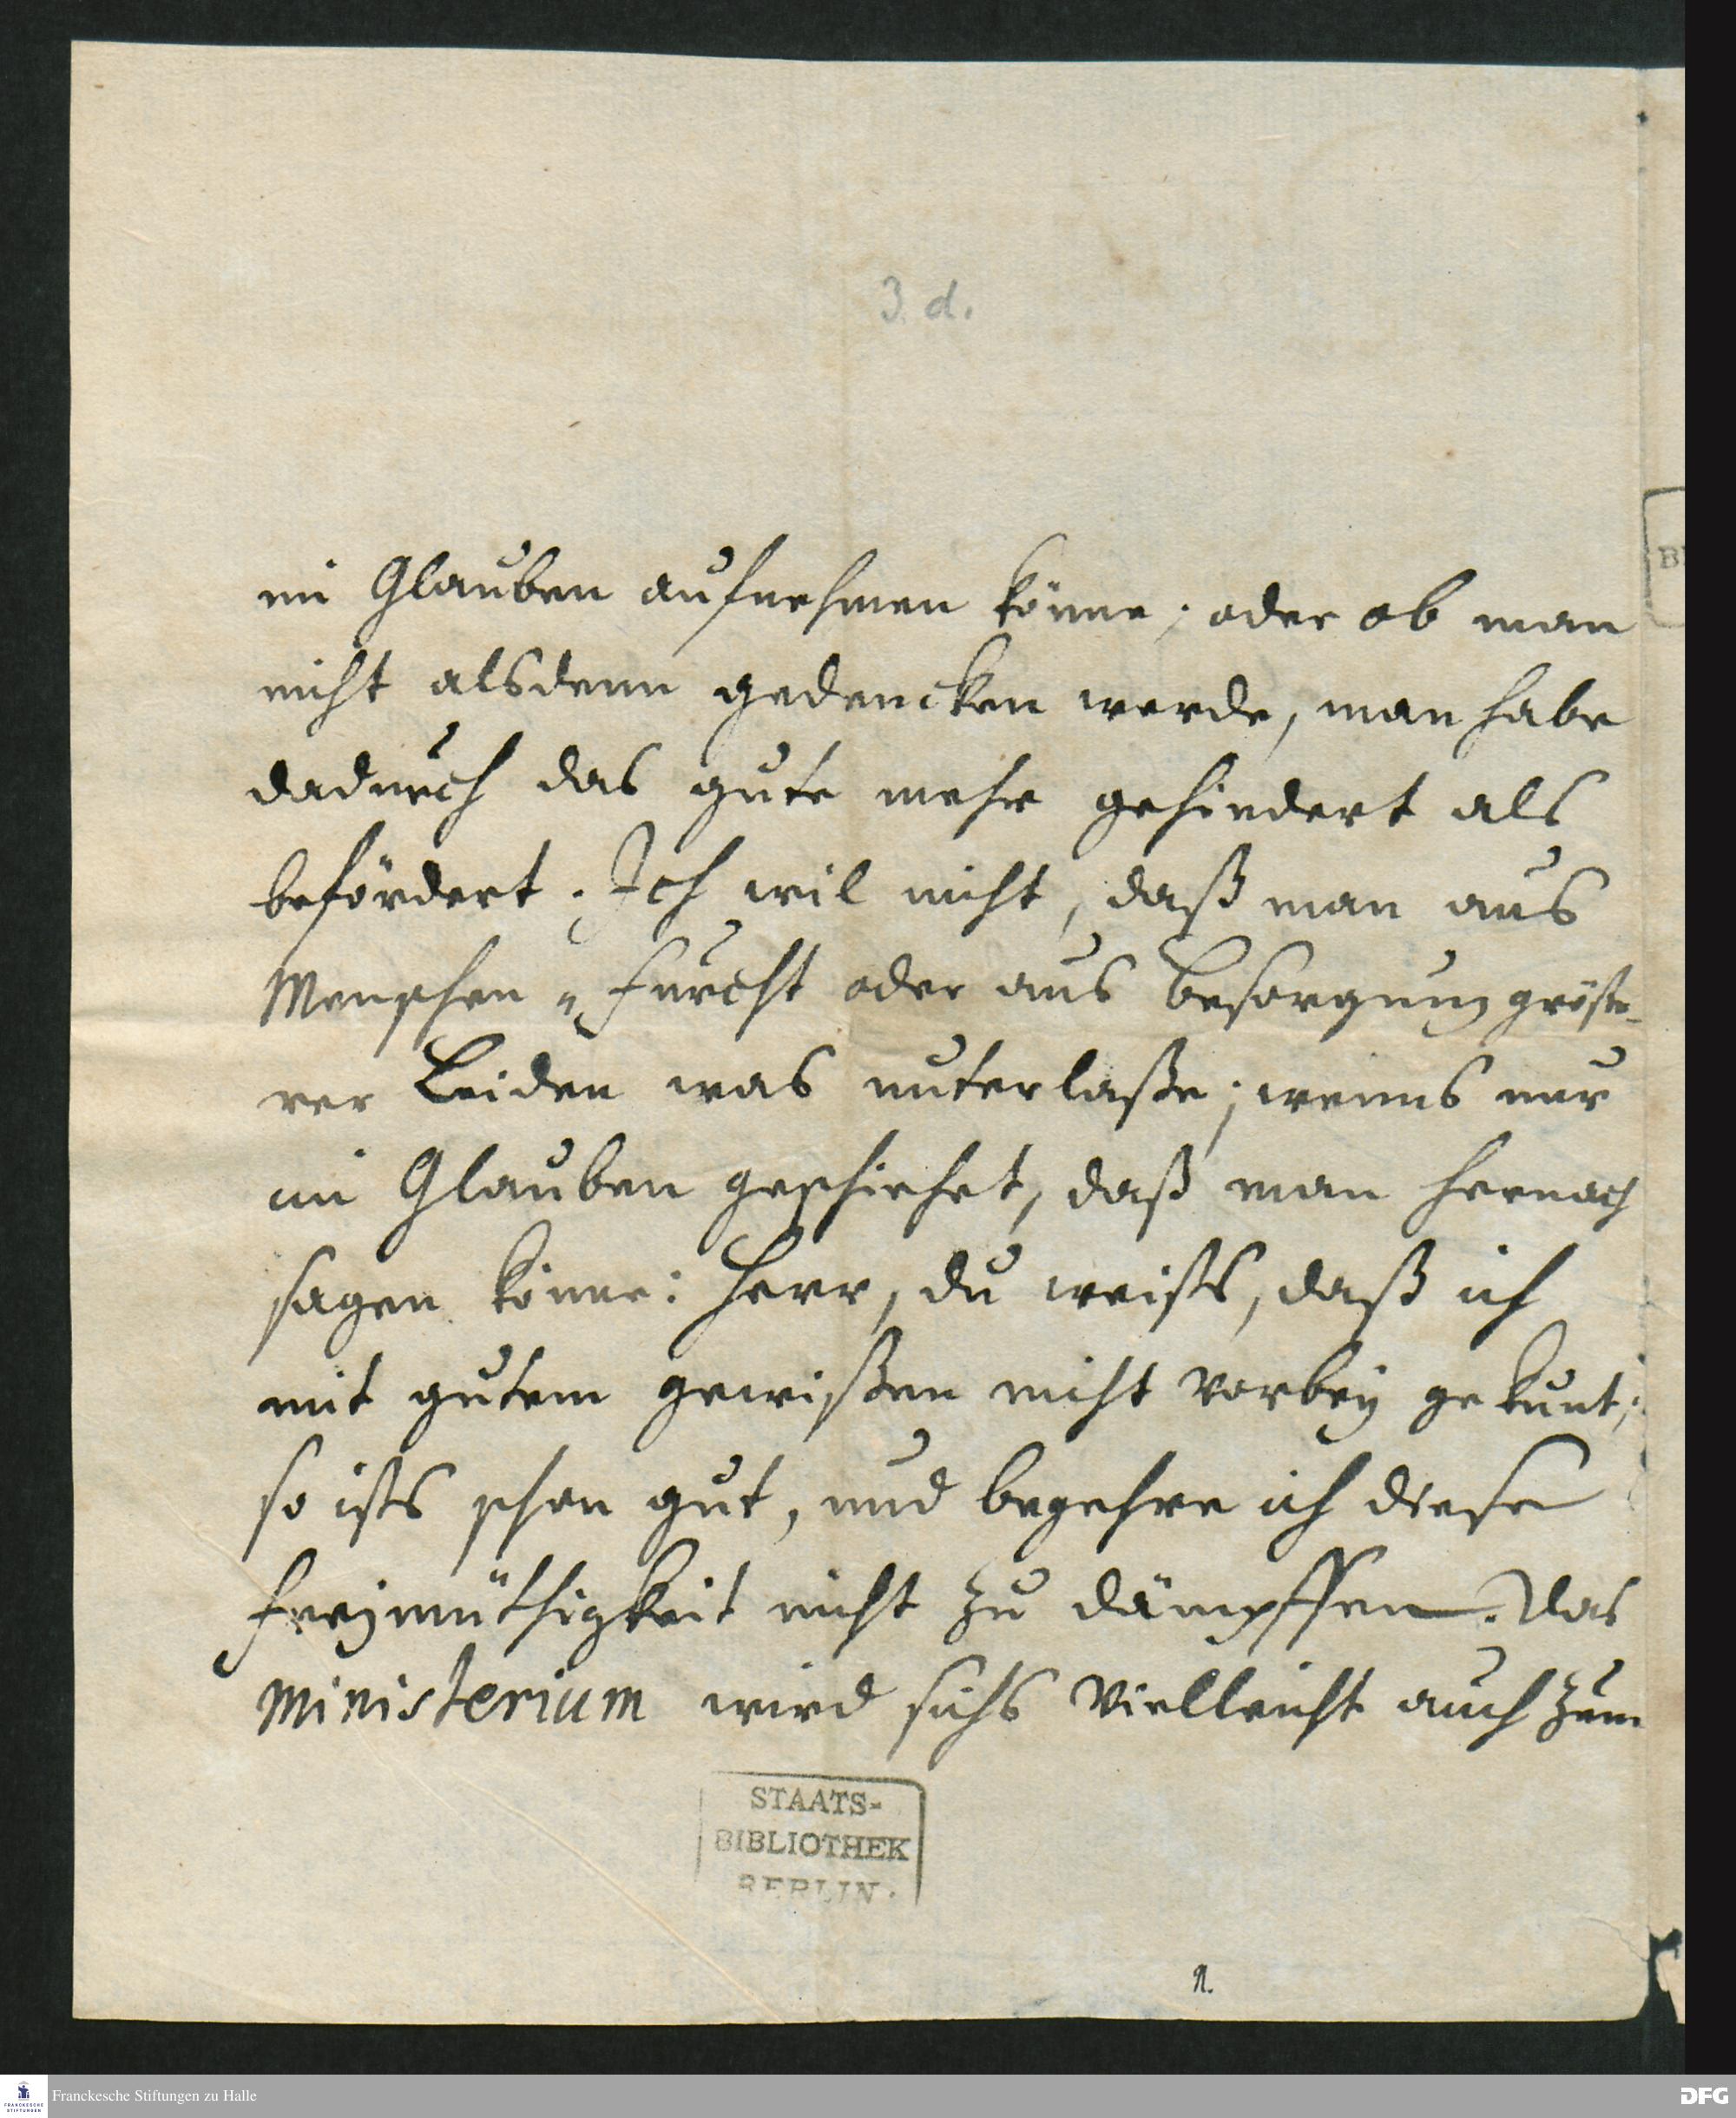 3. d.
im Glauben aufnehmen könne; oder ob man
nicht alsdenn gedencken werde, man habe
dadurch das gute mehr gehindert als
befördert. Ich wil nicht, daß man aus
Menschen-furcht oder aus besorgung größe-
rer Leiden was unterlaße; wenns nur
im Glauben geschiehet, daß man hernach
sagen könne: Herr, du weists, daß ich
mit gutem gewißen nicht vorbey gekunt;
so ists schon gut, und begehre ich diese
freymüthigkeit nicht zu dämpffen. Das
Ministerium wird sichs vielleicht auch zum
STAATS-
BIBLIOTHEK
BERLIN.
Franckesche Stiftungen zu Halle
FRANCKESCHE
STIFTUNGEN
DFG